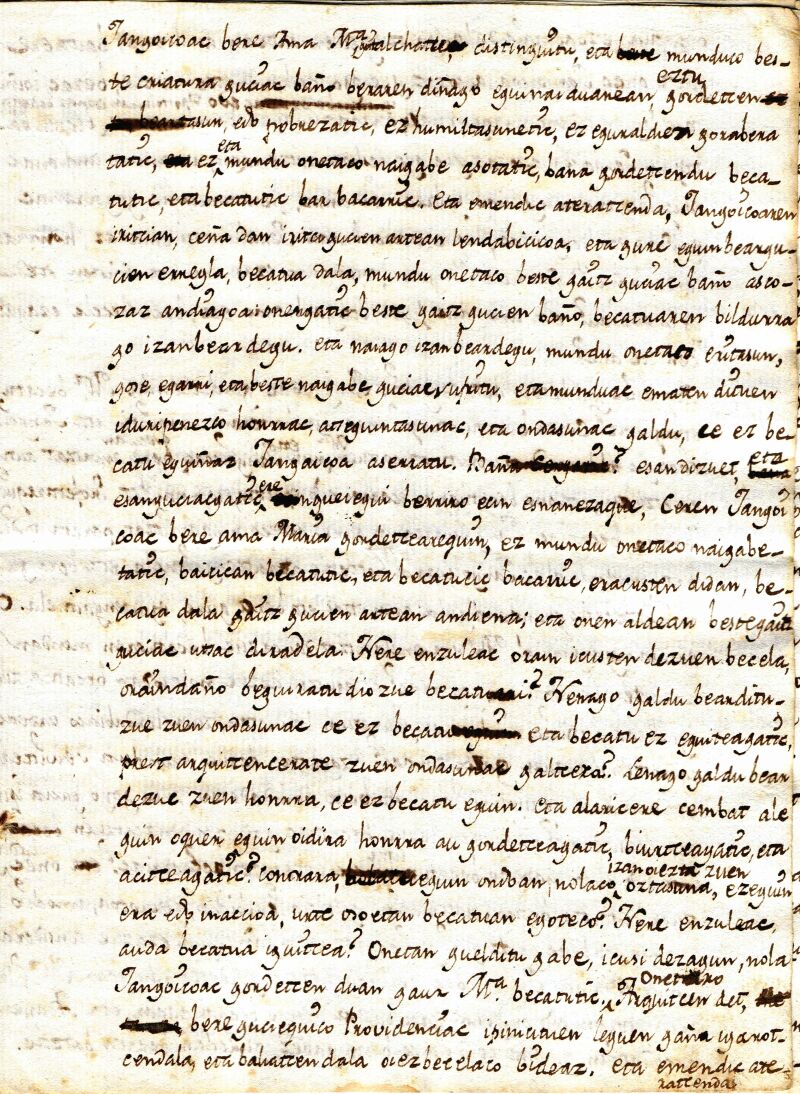 Jangoicoac bere Ama Mª alchatu, distinguitu, eta munduco bes-
te criatura guciac baño beraren diñago eguin ai duanean, eztu gordetcen
tasun, edo pobrezatic, ez humiltasunetic, ez eguraldien gorabera
tatic, ez eta mundu onetaco naigabe asotatic, bana gordetcendu beca-
tutic, eta becatutic bar bacarric. Eta emendic ateratcenda, Jangoicoaren
iritcian, ceña dan iritci gucien artean lendabicicoa, eta gure eguinbeargu-
cien erregla, becatua dala, mundu onetaco beste gaitz guciac baño asco-
zaz andiagoa: onengatic beste gaitz gucien baño, becatuaren bildurra
go izan beardegu. eta naiago izan beardegu, mundu onetaco eritasun,
gose, egarri, eta beste naigabe guciac sufritu, eta munduac ematen dituen
iduripenezco honrrac, atseguintasunac, eta ondasunac galdu, ce ez be-
catu eguiñaz Jangoicoa aserratu. Baña esandizuet, eta
esan guciac gatic ere, inguei egui berriro ecin esnanezaque, Ceren Jangoi
coac bere ama Maria gordetcearequin, ez mundu onetaco naigabe-
tatic, baicican becatutic, eta becatutic bacarric, eracusten didan, be-
catua dala gaitz gucien artean andiena; eta onen aldean beste gaitz
guciac utsac diradela. Nere enzuleac orain icusten dezuen becela,
oraindaño beguiratu dio zue becatu? Nenago galdu bearditu-
zue zuen ondasunac ce ez becatu eta becatu ez eguiteagatic,
prest arquitcencerate zuen ondasunac galtcera? Lenago galdu bear
dezue zuen honrra, ce ez becatu eguin. Eta alaric ere cembat ale
guin oquer eguin oidira honrra au gordetceagatic, biurtceagatic, eta
acitceagatic? contrara, egun ondoan, nolaco izan oi ezta zuen oztasuna, ez eguin
era edo inaccioa, urte osoetan becatuan egoteco? Nere enzuleac,
auda becatua iguitcea? Onetan guelditu gabe, icusi dezagun, nola
Jangoicoac gordetcen duan gaur Mª becatutic. Onetaraco Arguitcen det,
bere guciequico Providenciac ipinicituen leguen gaña igarot-
cendala, eta baliatcen dala oiez becelaco bideaz. eta emendic ate-
ratcenda